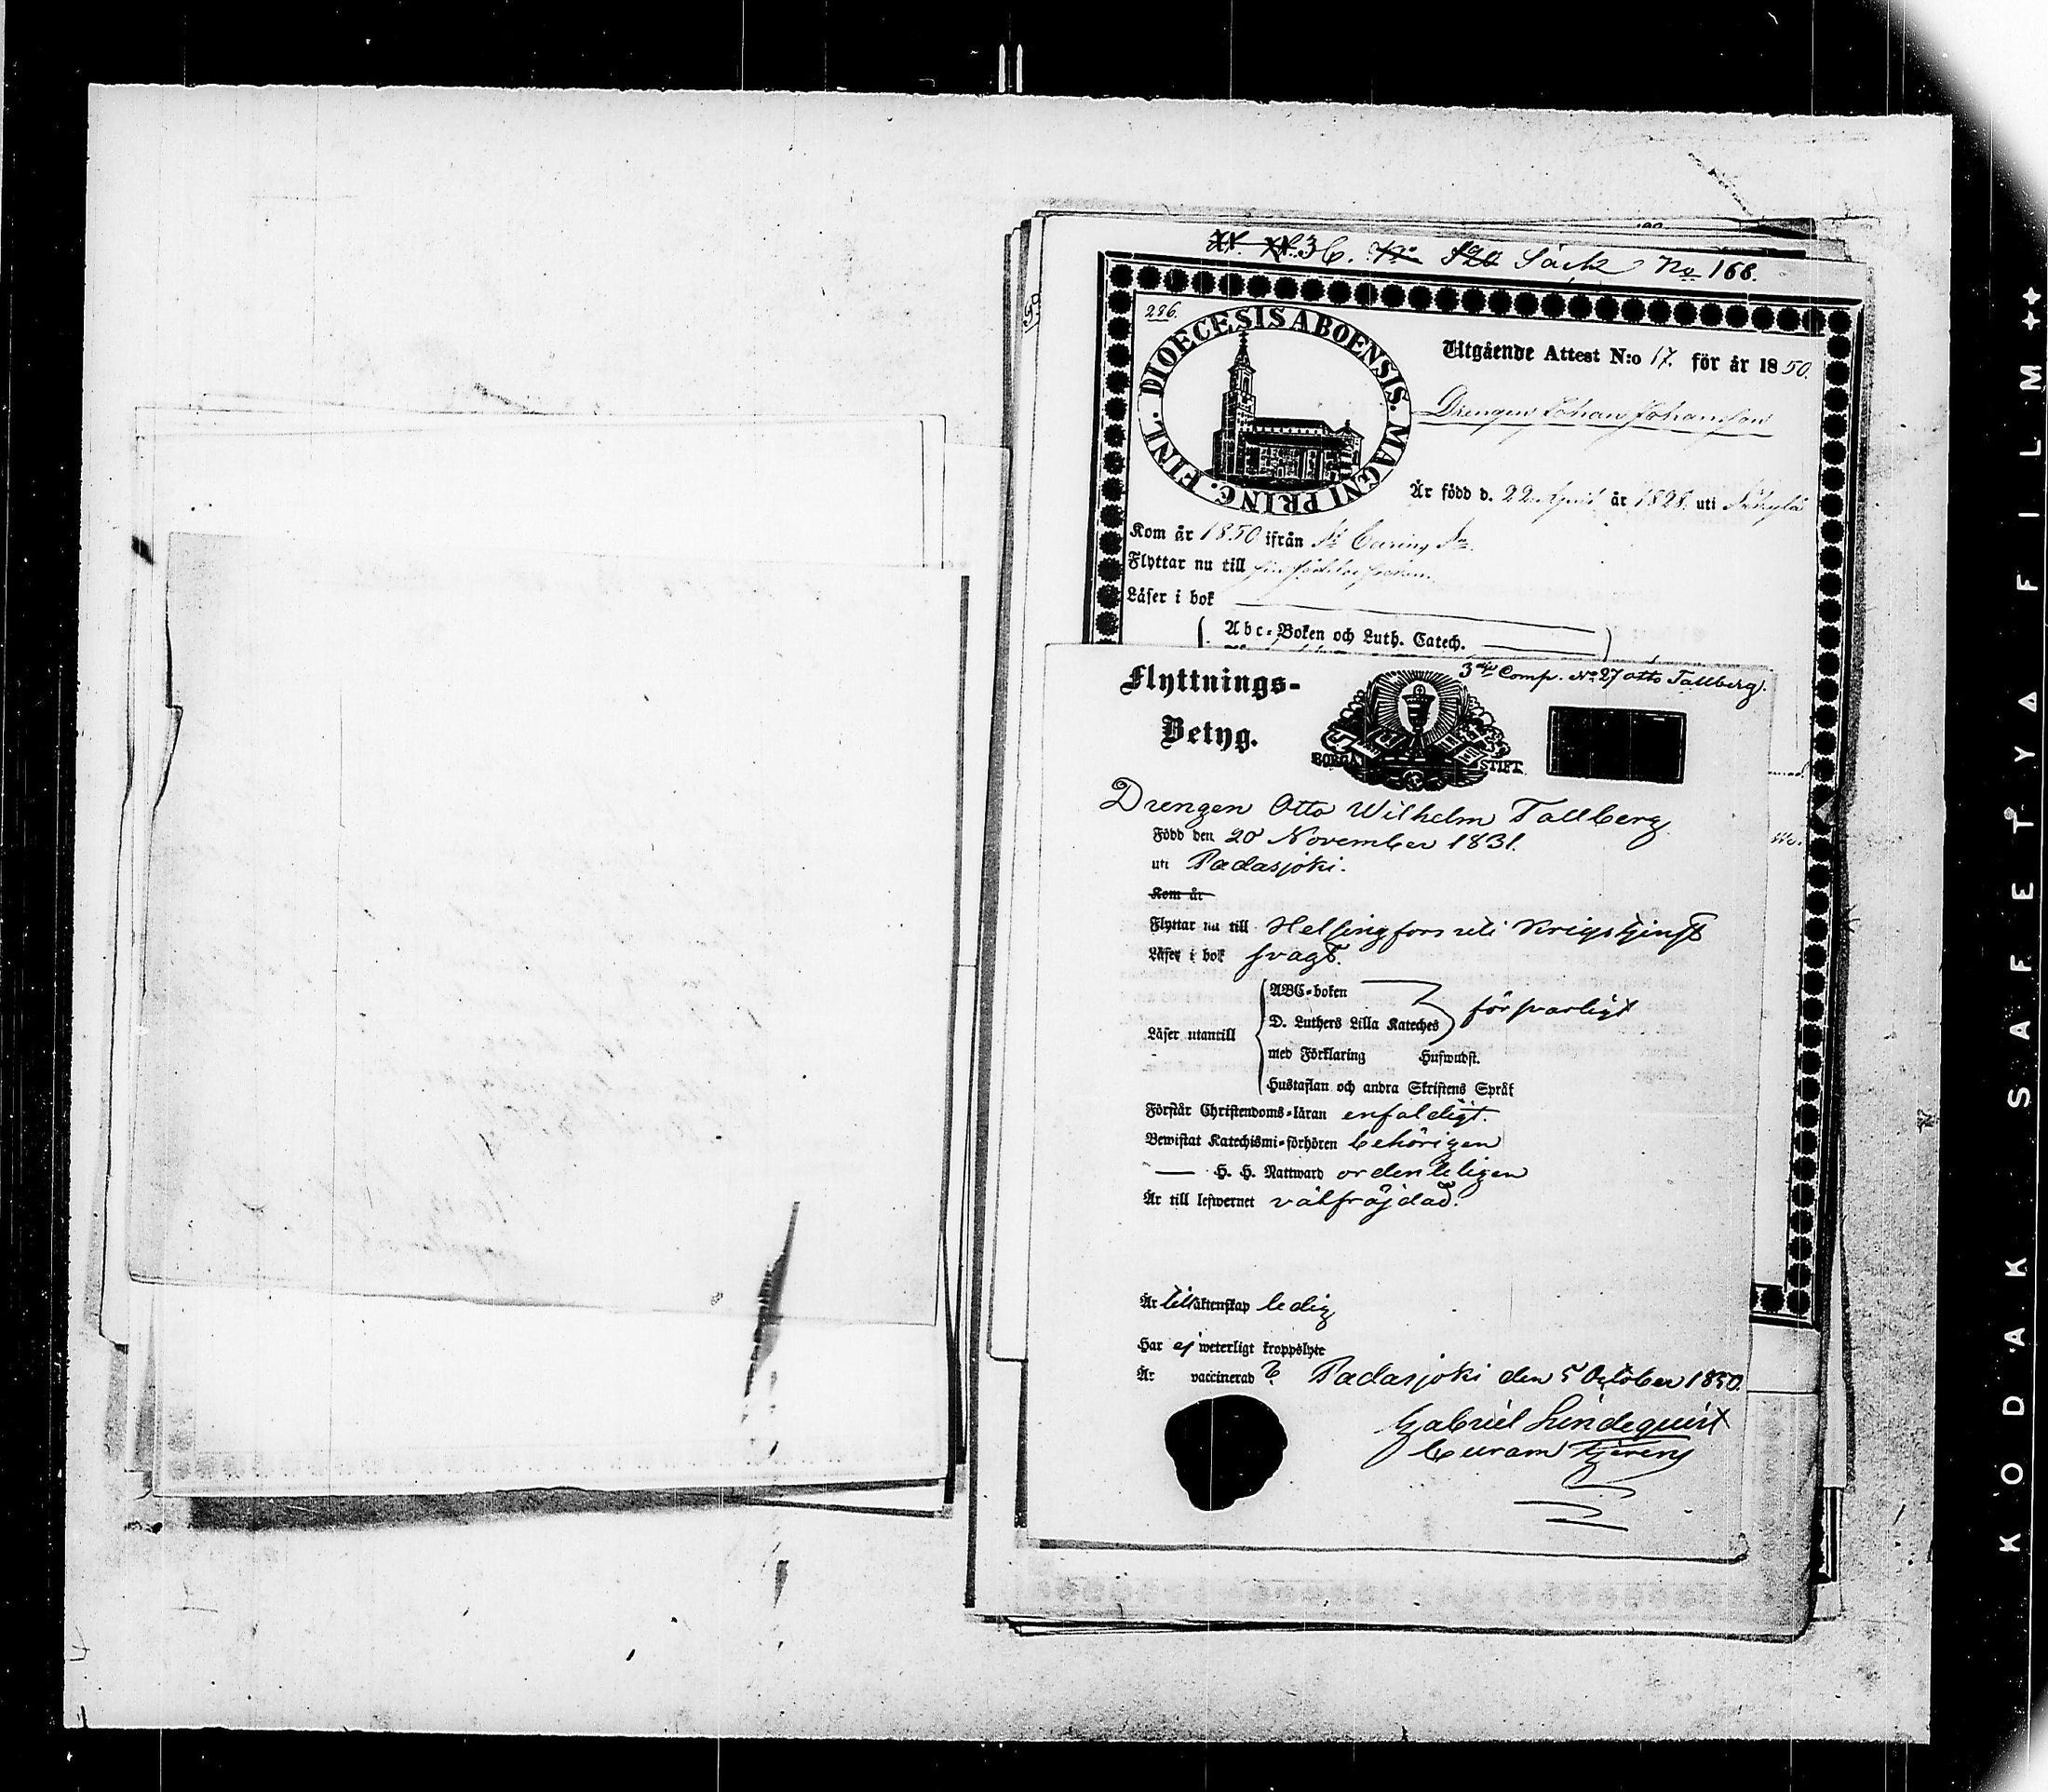 3 C. Säck No 168.
226.
DIOECESIS ABOENSIS. MAGNI PRINC. FINL.
Utgående Attest N:o 17. för år 1850.
Drengen Johan Johansson
Är född d. 22 April år 1828. uti Säkylä
Kom år 1850 ifrån
Flyttar nu till
Läser i bok
Abc-Boken och Luth. Catech.
3dje Comp. No 27 Otto Tallberg.
Flyttnings-
Betyg.
BORGÅ STIFT
Drengen Otto Wilhelm Tallberg
Född den 20 November 1831.
uti Padasjoki.
Kom år
Flyttar nu till Helsingfors uti Krigstjenst
Läser i bok svagt.
ABC-boken
D. Luthers Lilla Kateches försvarligt
Läser utantill
med Förklaring Hufwudst.
Hustaflan och andra Skriftens Språk
Förstår Christendoms-läran enfaldigt.
Bewistat Katechismi-förhören behörigen
— H. H. Nattward ordenteligen
Är till lefwernet välfräjdad.
Är till äktenskap ledig
Har ej weterligt kroppslyte
Är vaccinerad ? Padasjoki den 5 October 1850.
Gabriel Lindequist
Curam Gerens
KODAK SAFETY FILM